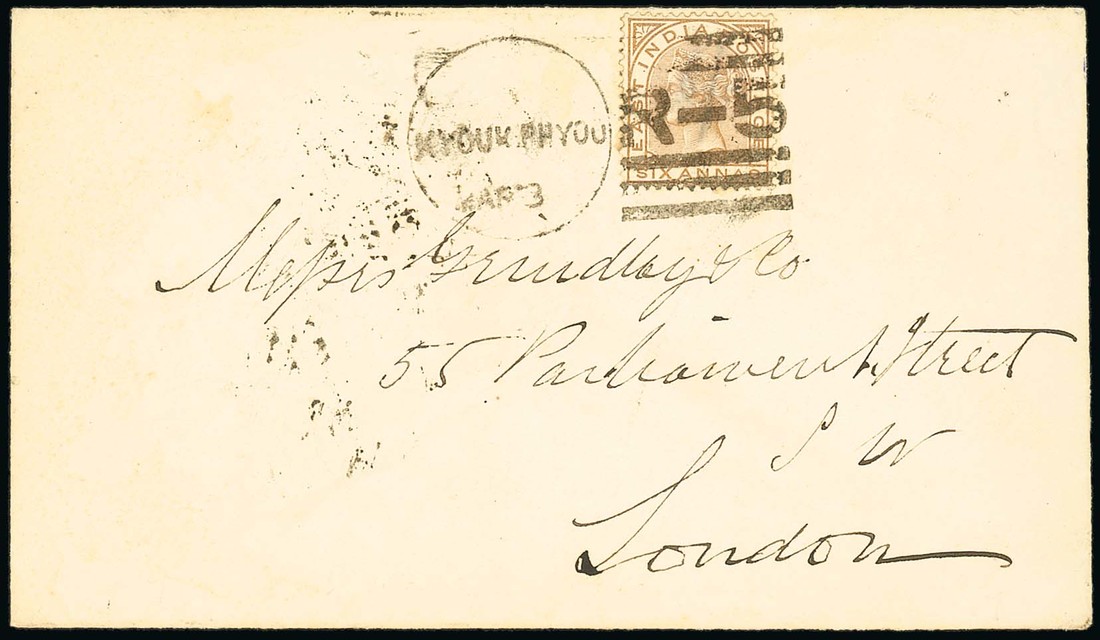 EAST INDIA POSTAGE
R-5
SIX ANNAS
KYOUK PHYOU
MAR 3
Messrs Grindlay & Co
55 Parliament Street
S W
London